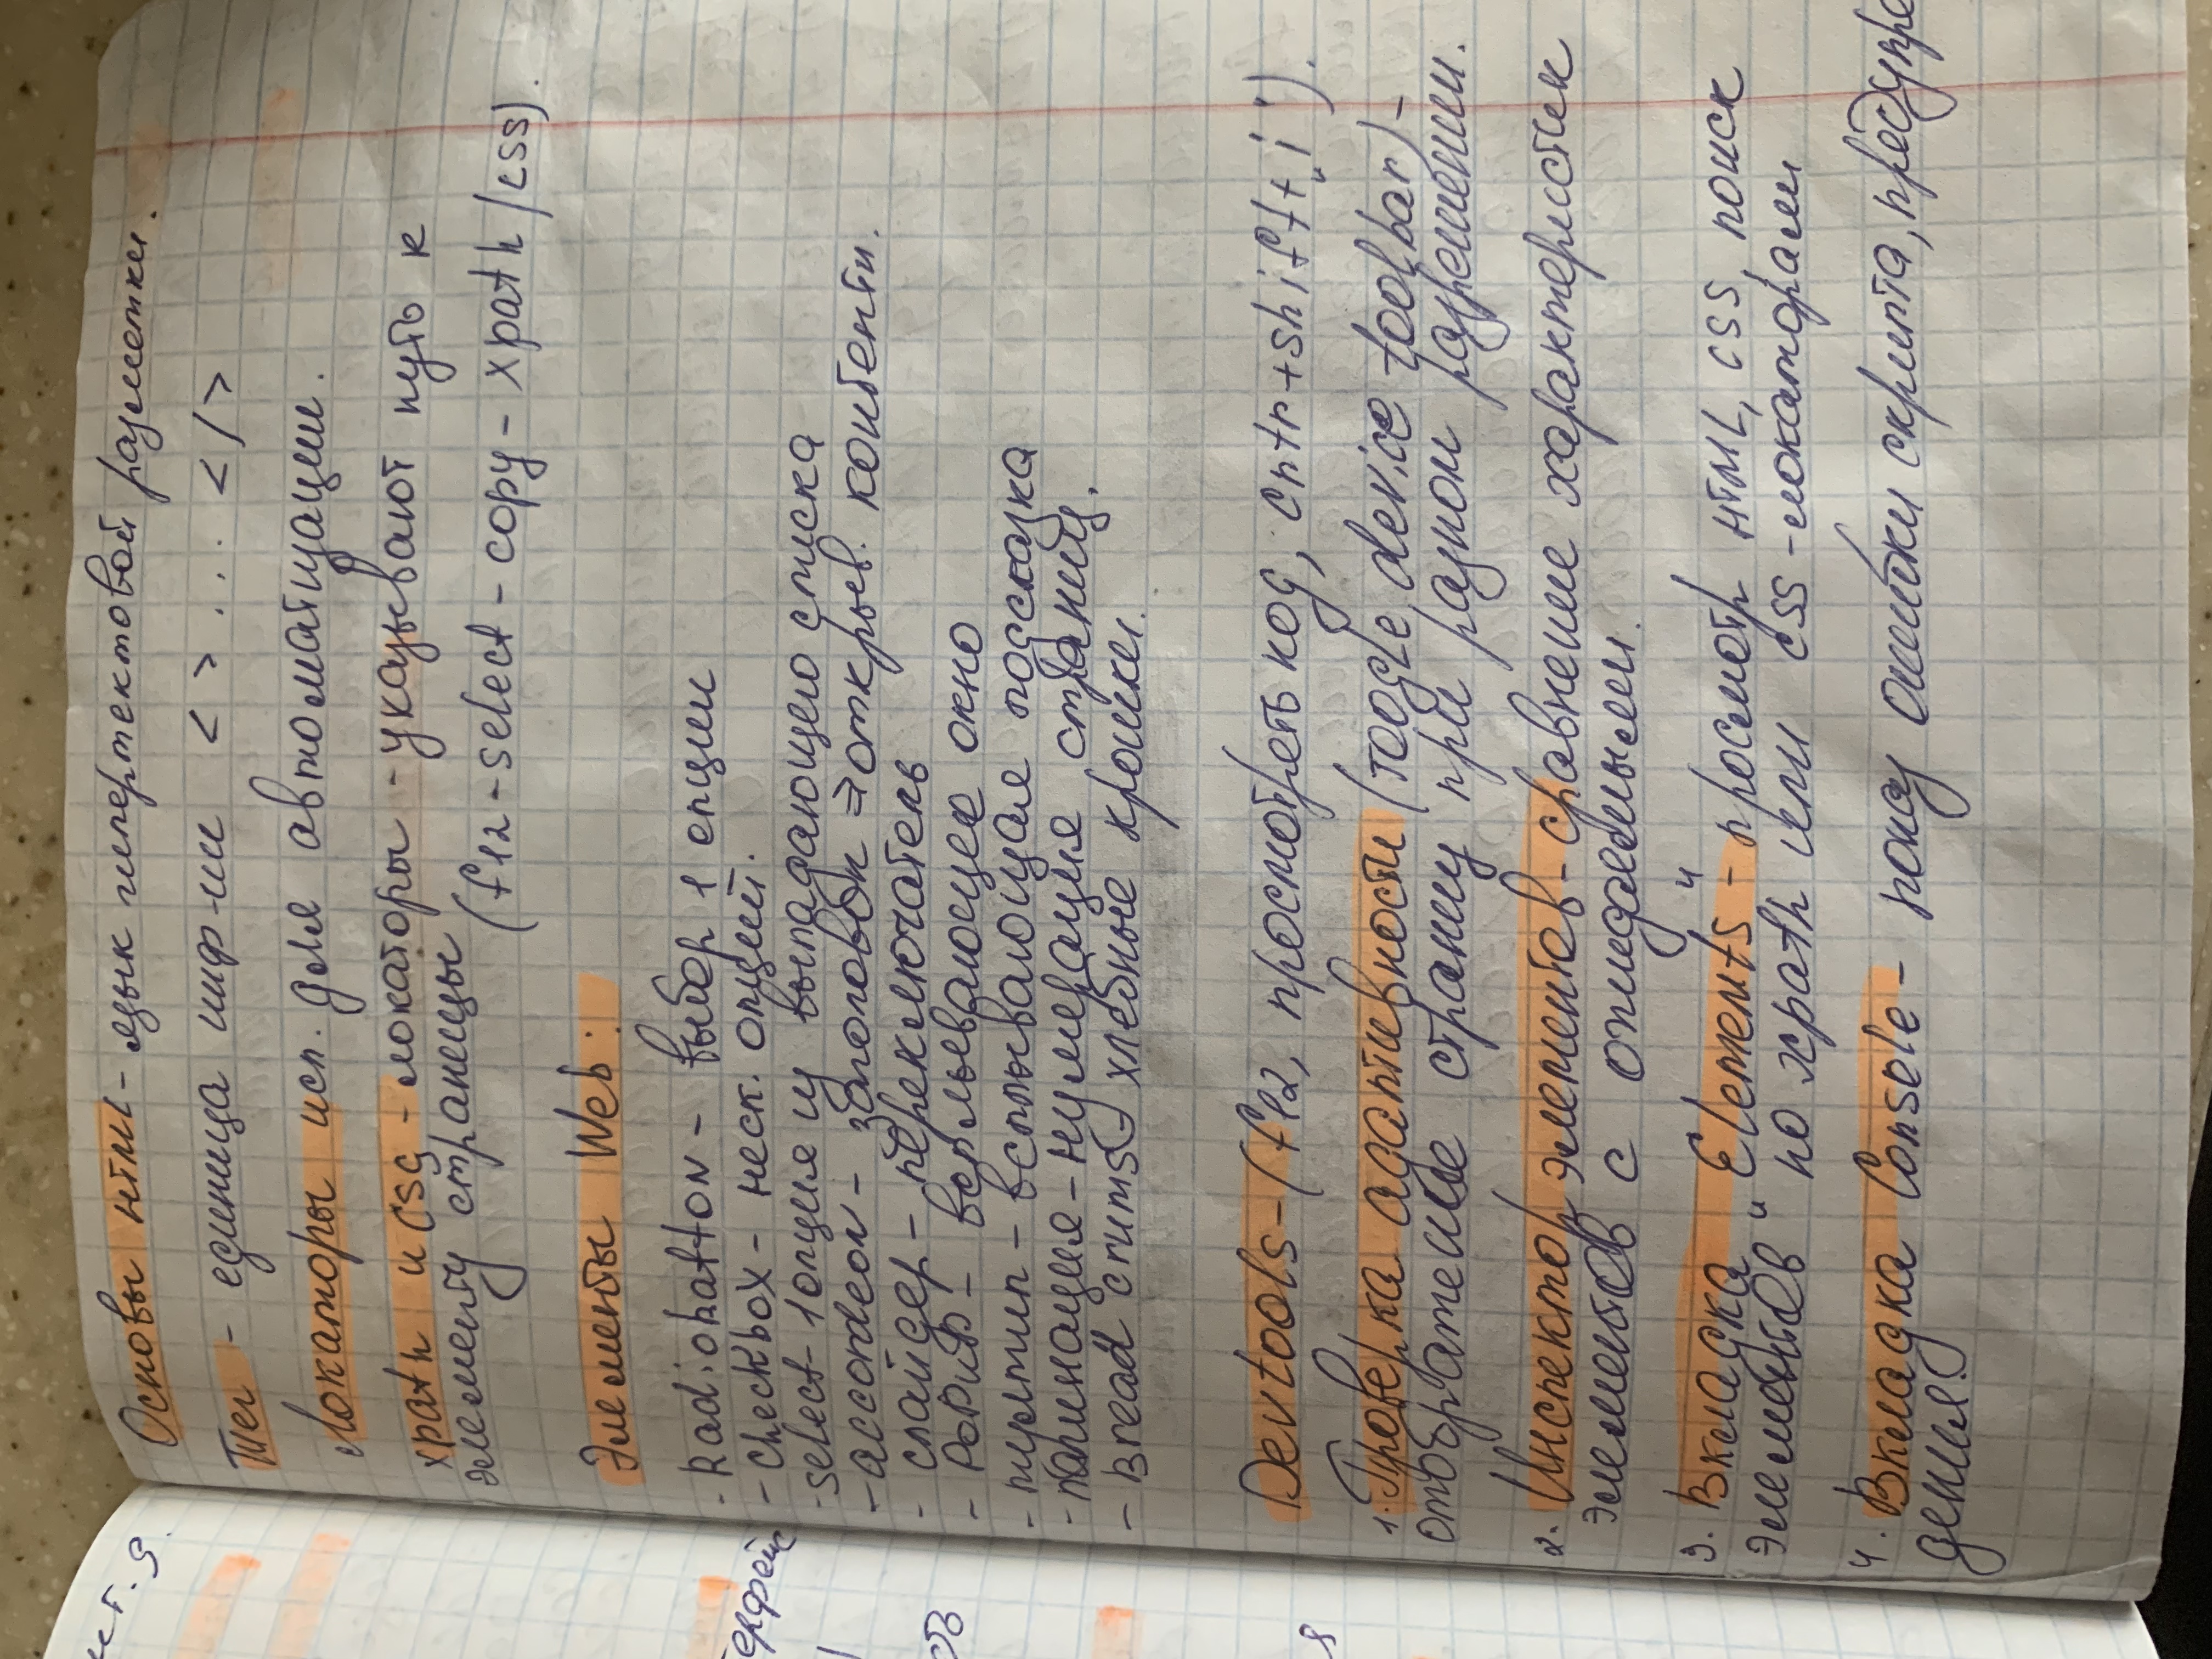 Основы HTML - язык гипертектовой разметки.
Тег - единица инф-ии < > ... < / >
Локаторы исп. для автоматизации.
xpath и CSS - локаторы - указывают путь к
элементу страницы
(f12 - select - copy - xpath / css).
Элементы Web:
- Radiobatton - выбор 1 опции
- Checkbox - неск. опций.
- select - 1 опция из выпадающего списка
- accordeon - заголовок => открыв. контент.
- слайдер - переключатель
- PoPuP - всплывающее окно
- тултип - всплывающая подсказка
- пагинация - нумерация страниц.
- Bread crums - хлебные крошки.
Devtools - (f12, просмотреть код, cntr + shift + "i").
1. Проверка адаптивности (Toogle device toolbar) -
отображение страниц при разном разрешении.
2. Инспектор элементов - сравнение характеристик
элементов с ожидаемыми.
3. Вкладка "Elements" - просмотр HTML, CSS, поиск
элементов по xpath или css - локаторами
4. Вкладка Console - показ ошибки скрипта, предупре
дения.
ерфейс